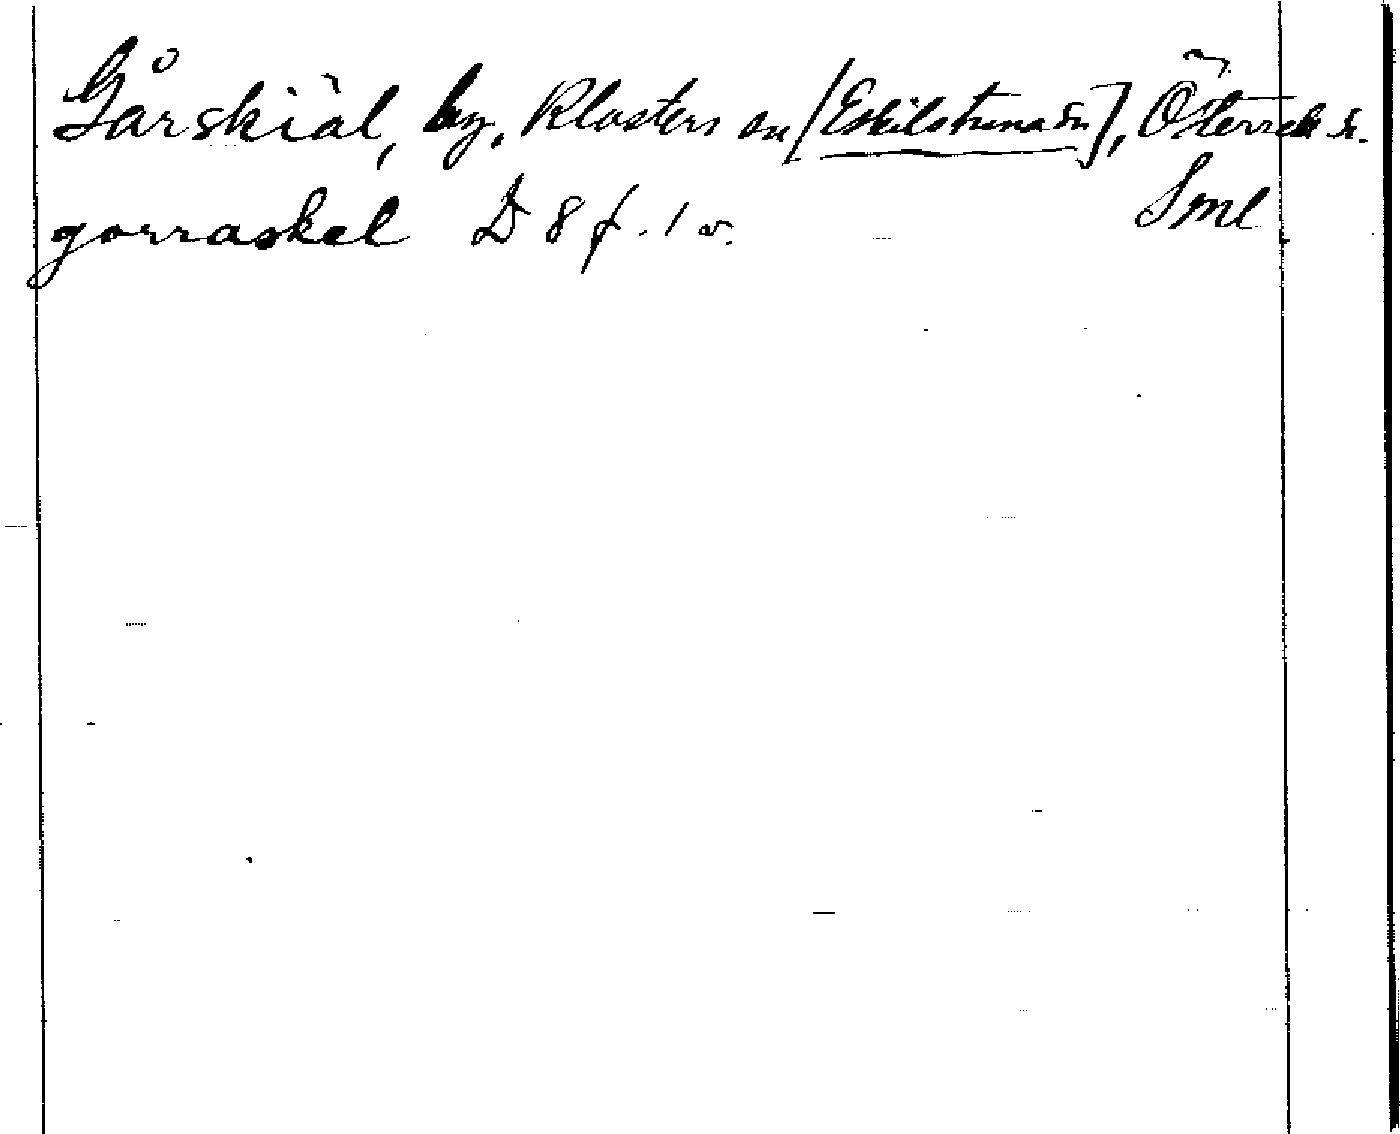 Gårskiäl, by, Klosters sn [Eskilstuna sn], Österrek. h.
Sml
gorraskel D 8 f. 1 v.